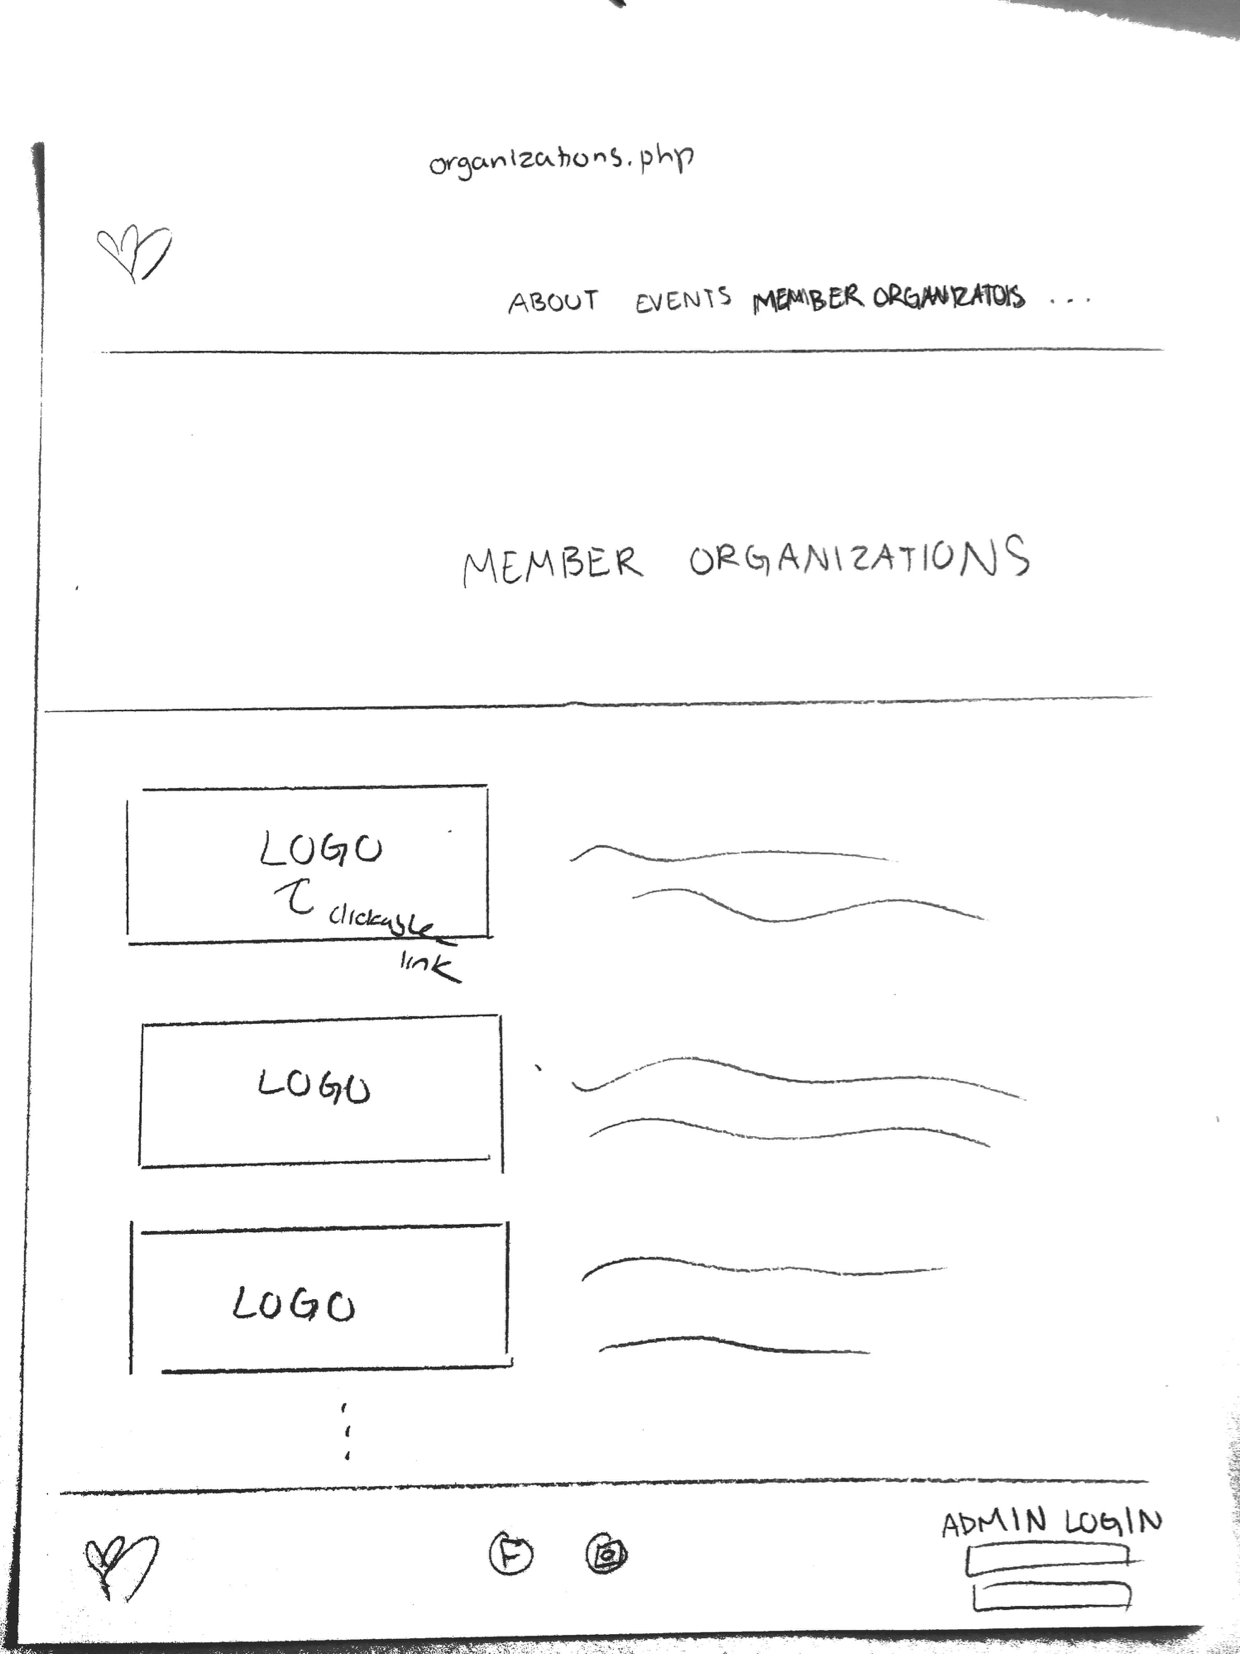 organizations.php
ABOUT EVENTS MEMBER ORGANIZATOIS ...
MEMBER ORGANIZATIONS
LOGO
clickable
link
LOGO
LOGO
ADMIN LOGIN
F